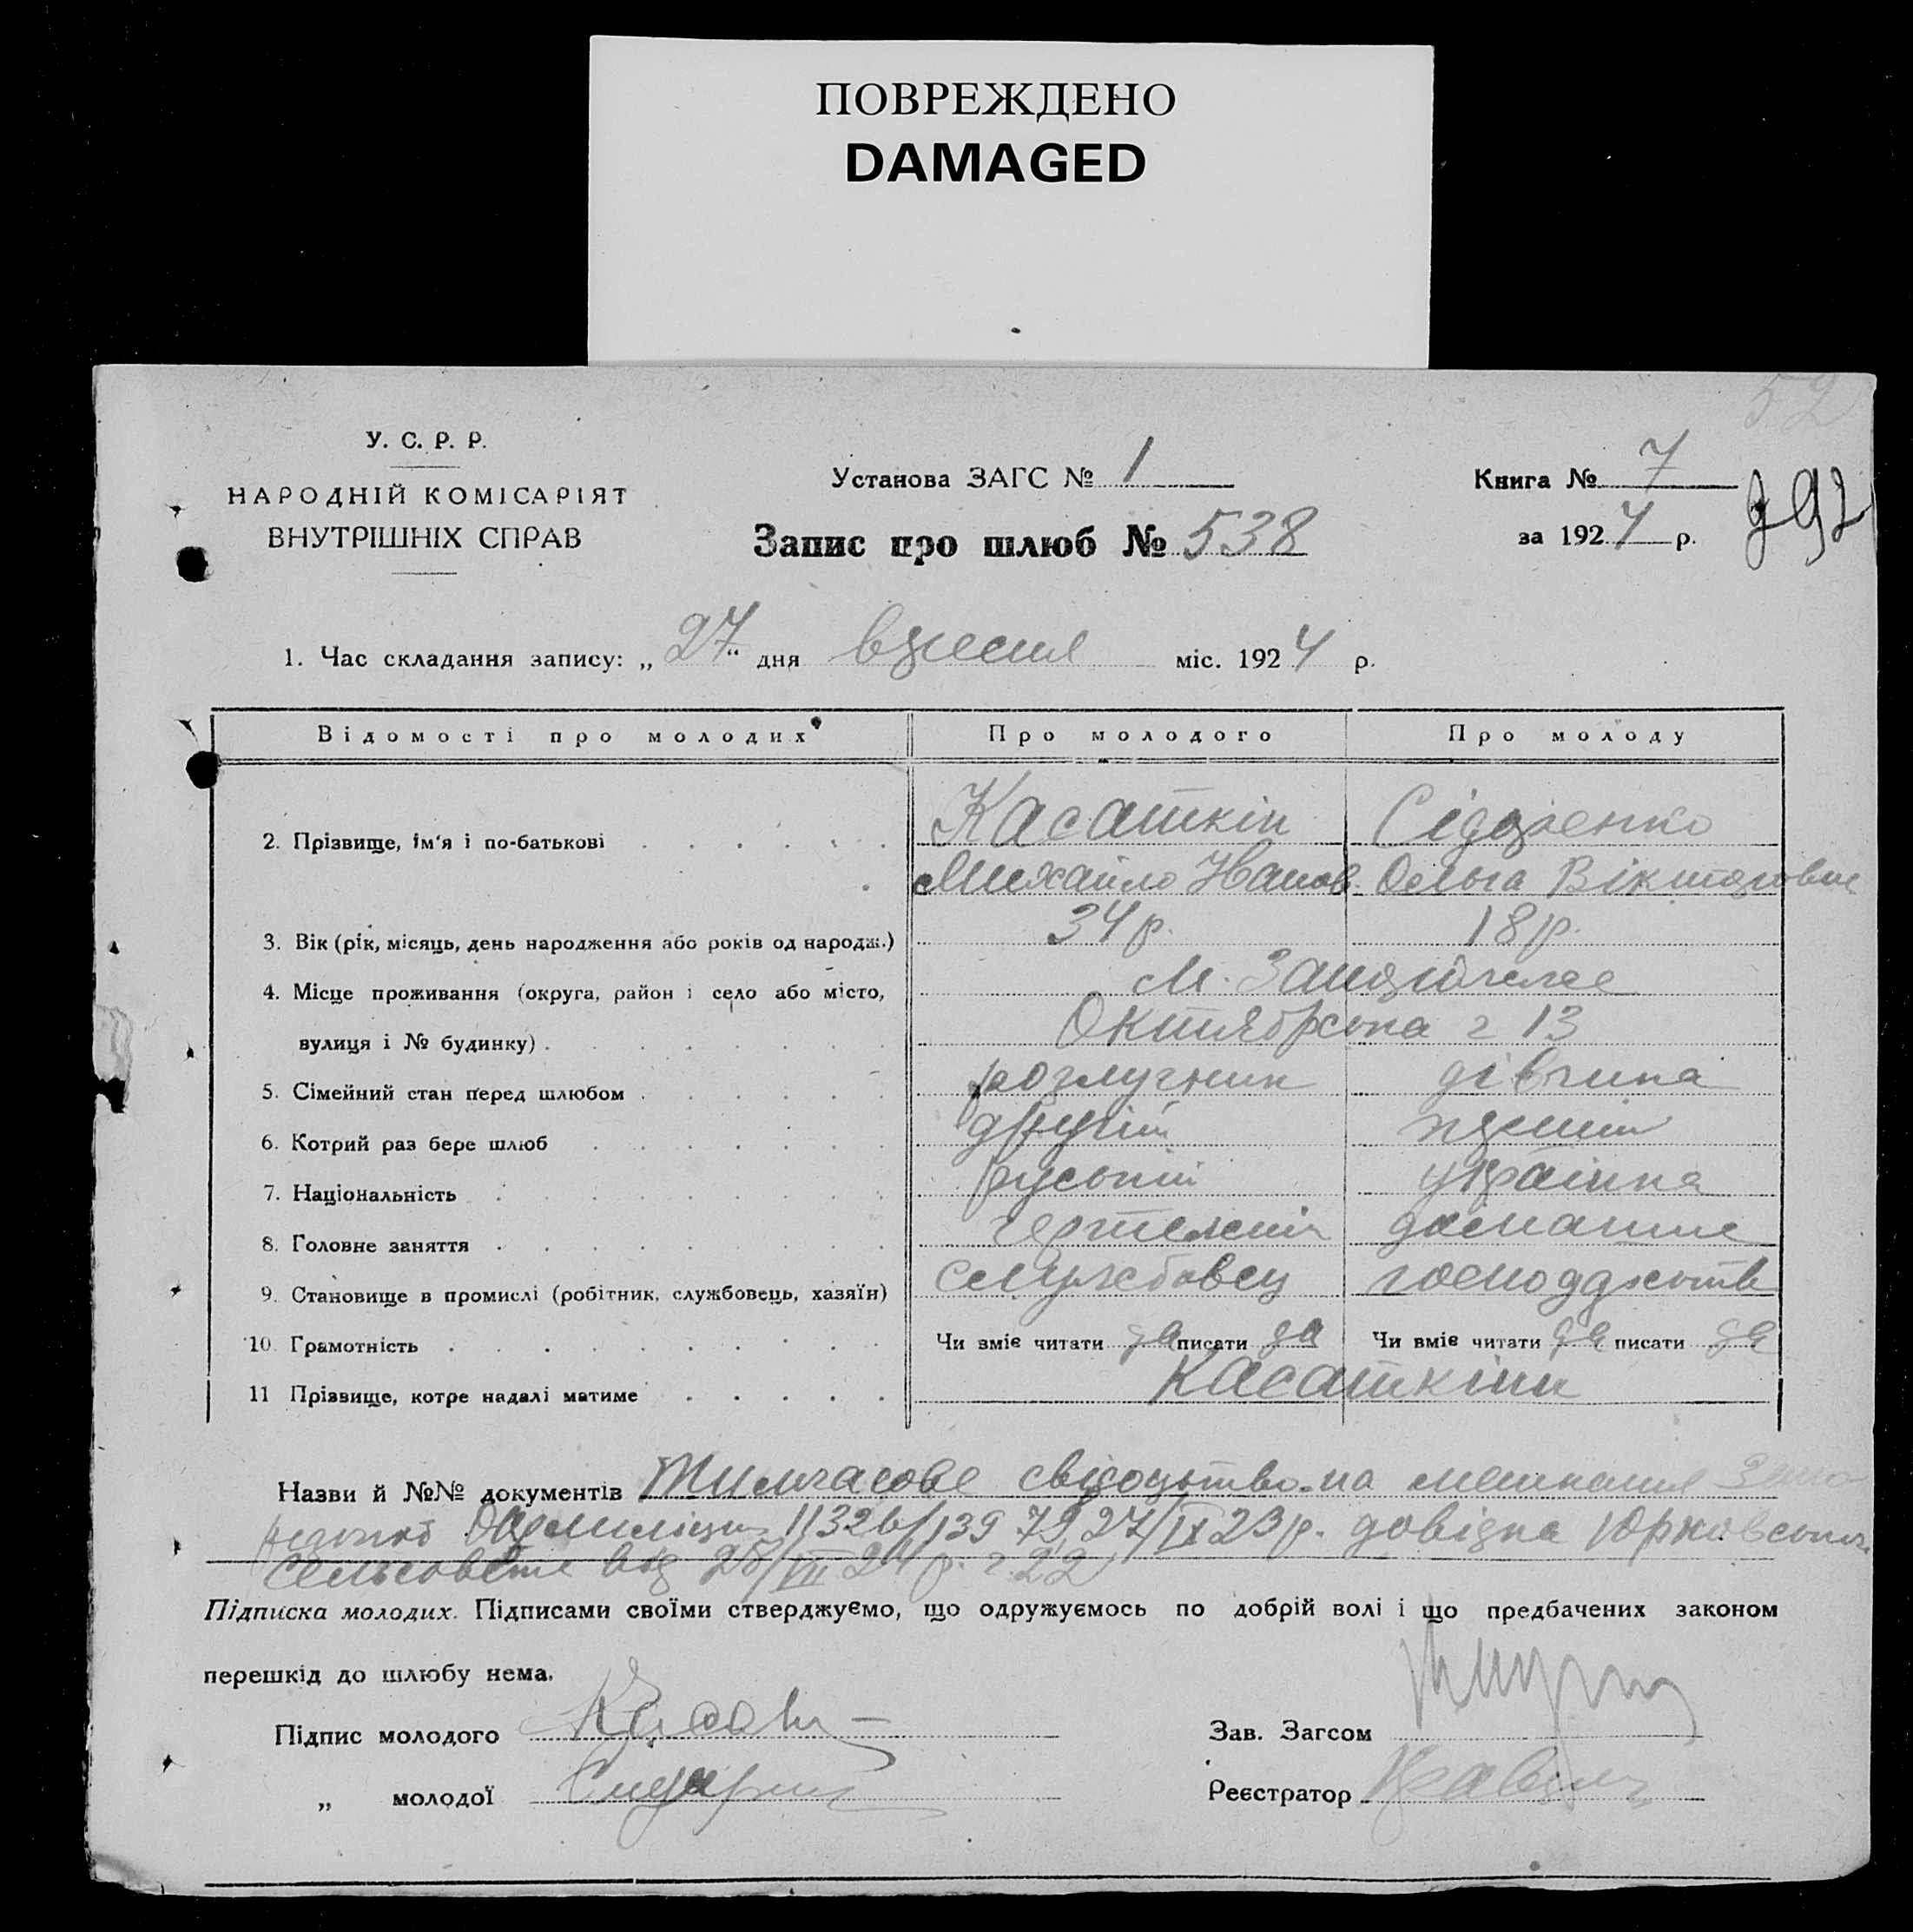 ПОВРЕЖДЕНО
DAMAGED
52
У. С. Р. Р.
НАРОДНІЙ КОМІСАРІЯТ
ВНУТРІШНІХ СПРАВ
Установа ЗАГС № 1
Запис про шлюб № 538
Книга № 7
за 1924 р.
1. Час складання запису: „27“ дня вересня міс. 1924 р.
Відомості про молодих Про молодого Про молоду
2. Прізвище, ім'я і по-батькові Касаткін Сідоренко
Михайло Иванов. Ольга Вікторовна
3. Вік (рік, місяць, день народження або років од народж.) 34 р. 18 р.
4. Місце проживання (округа, район і село або місто, м. Запоріжжє
вулиця і № будинку) Октябрська 13
5. Сімейний стан перед шлюбом розлучник дівчина
6. Котрий раз бере шлюб другий перший
7. Національність руський українка
8. Головне заняття домашнє
9. Становище в промислі (робітник, службовець, хазяїн) службовець господарств
10. Грамотність Чи вміє читати да писати да Чи вміє читати да писати да
11 Прізвище, котре надалі матиме Касаткіни
Назви й №№ документів Тимчасове свідоцтво на мешкання
11326/139 79 27/IX 23 р. довідка Юрковської
сельсовета від 25/VII 24 р. 22
Підписка молодих. Підписами своїми стверджуємо, що одружуємось по добрій волі і що предбачених законом
перешкід до шлюбу нема.
Підпис молодого
Зав. Загсом
„ молодої
Реєстратор